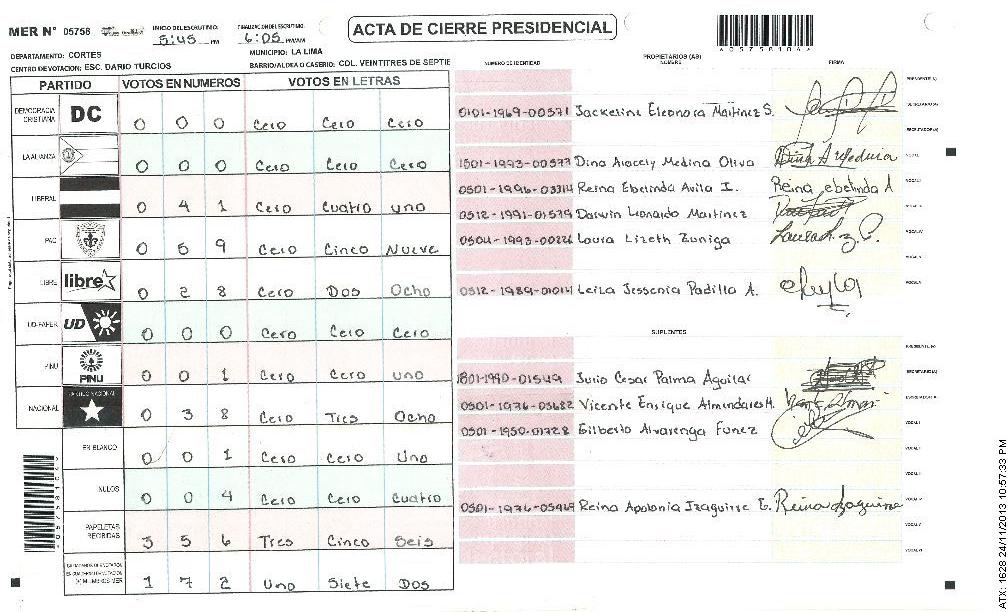 MER N° 05758 INICIO DEL ESCRUTINIO: 5:45 PM FINALIZACION DEL ESCRUTINIO: 6:05 PM/AM
ACTA DE CIERRE PRESIDENCIAL
DEPARTAMENTO: CORTES MUNICIPIO: LA LIMA
CENTRO DE VOTACION: ESC. DARIO TURCIOS BARRIO/ALDEA O CASERIO: COL. VEINTITRES DE SEPTIE
PARTIDO VOTOS EN NUMEROS VOTOS EN LETRAS
DEMOCRACIA CRISTIANA DC 0 0 0 Cero Cero Cero
LA ALIANZA 0 0 0 Cero Cero Cero
LIBERAL 0 4 1 Cero Cuatro uno
PAC 0 5 9 Cero Cinco Nueve
LIBRE libre 0 2 8 Cero Dos Ocho
UD-FAPER UD 0 0 0 Cero Cero Cero
PINU PINU 0 0 1 Cero Cero uno
NACIONAL PARTIDO NACIONAL 0 3 8 Cero Tres Ocho
EN BLANCO 0 0 1 Cero Cero Uno
NULOS 0 0 4 Cero Cero Cuatro
PAPELETAS RECIBIDAS 3 5 6 Tres Cinco Seis
1 7 2 Uno Siete Dos
NUMERO DE IDENTIDAD PROPIETARIOS (AS) NOMBRE FIRMA
PRESIDENTE (A)
0101-1969-00571 Jackeline Eleonora Martinez S. SECRETARIO (A)
ESCRUTADOR (A)
1501-1993-00577 Dina Aracely Medina Oliva Dina A Medina VOCAL I
0501-1996-03314 Reina Ebelinda Avila I. Reina ebelinda A
0512-1991-01579 Darwin Leonardo Martinez
0504-1993-00226 Laura Lizeth Zuniga
0512-1989-01014 Leila Jessenia Padilla A.
SUPLENTES
PRESIDENTE (A)
1801-1990-01549 Julio Cesar Palma Aguilar SECRETARIO (A)
0501-1976-03682 Vicente Enrique Almendares H. ESCRUTADOR (A)
0501-1950-01728 Gilberto Alvarenga Funez VOCAL I
0501-1976-05969 Reina Apolonia Izaguirre E. Reina Izaguirre
ATX: 1628 24/11/2013 10:57:33 PM